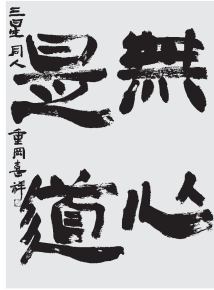 無心
是道
三星同人 重岡喜祥